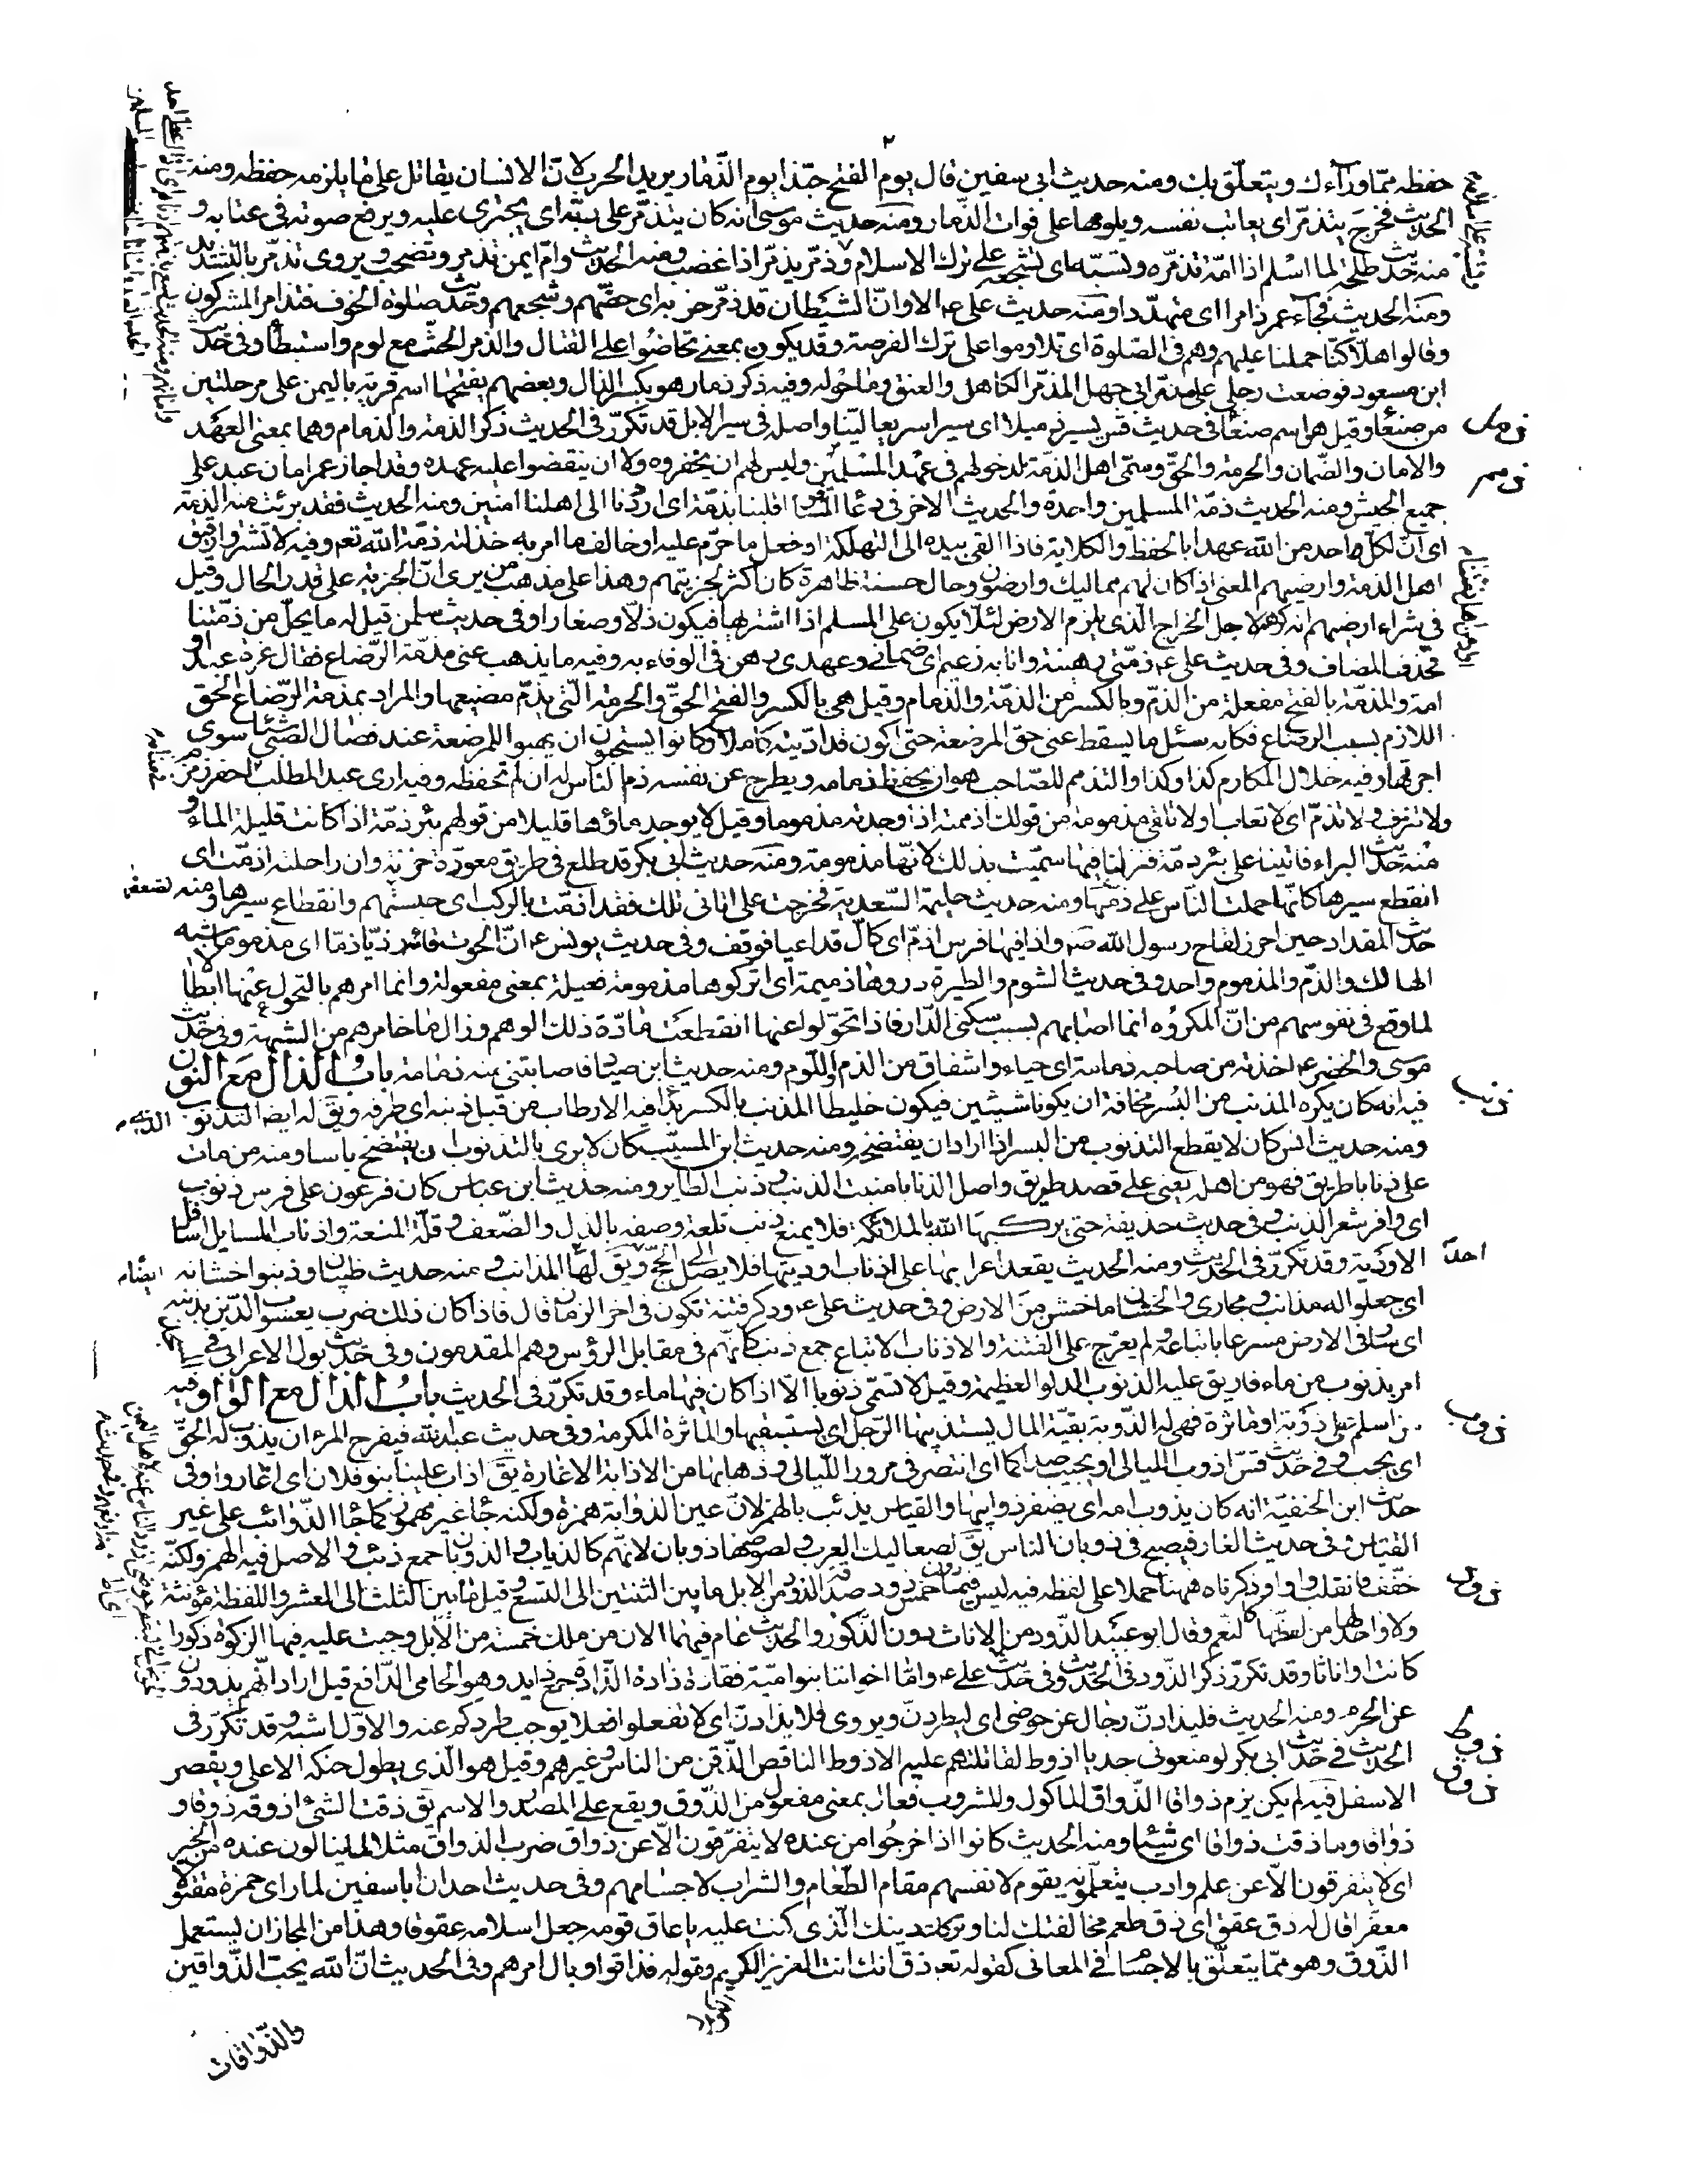 حفظه ممّا ورآءك ويتعلّق بك ومنه حديث ابى سفين قال يوم الفتح حبّذا يوم الذّمار يريد الحرب لانّ الانسان يقاتل على ما يلزمه حفظه ومنه
الحديث فخرج يتذمّر اى يعاتب نفسه ويلومها على فوات الذّمار ومنه حديث موسى انه كان يتذمّر على ربّه اى يجترى عليه ويرفع صوته فى عتابه و
منه حديث طلحة لما اسْلم اذا امّه تذمّره وتسبّه اى تشجعه على ترك الاسلام وذمر يذمّر اذا غضب ومنه الحديث وامّ ايمن تذمر وتصخب ويروى تذمّر بالتشديد
ومنه الحديث فجآء عمر ذامرا اى متهدّدا ومنه حديث على ع الا وانّ الشيطان قد ذمّر حزبه اى حضّهم وشجعهم وحديث صلوة الخوف فتذامر المشركون
وقالوا هلّا كنّا حملنا عليهم وهم فى الصّلوة اى تلاوموا على ترك الفرصة وقد يكون بمعنى تحاضوا على القتال والذمر الحثّ مع لوم واستبطاء وفى حديث
ابن مسعود فوضعت رجلى على مذمّر ابى جهل المذمّر الكاهل والعنق وما حوله وفيه ذكر ذمار هو بكسر الذال وبعضهم يفتحها اسم قرية باليمن على مرحلتين
من صنعا وقيل هو اسم صنعا فى حديث قسّ يسير ذميلا اى سيرا سريعا ليّنا واصله فى سير الابل قد تكرّر فى الحديث ذكر الذمة والذمام وهما بمعنى العهد
والامان والضّمان والحرمة والحقّ وسمّى اهل الذمّة لدخولهم فى عهد المسلمين وليس لهم ان يخفروه ولا ان ينقضوا عليه عهده وقد اجاز عمر امان عبد على
جميع الجيش ومنه الحديث ذمّة المسلمين واحدة والحديث الاخر فى دعا المسافر اقلبنا بذمّة اى اردُدنا الى اهلنا امنين ومنه الحديث فقد برئت منه الذمّة
اى انّ لكلّ احد من الله عهدا بالحفظ والكلاية فاذا القى بيده الى التهلكة او فعل ما حرّم عليه او خالف ما امر به خذلته ذمّة الله تعه وفيه لا تشتروا رقيق
اهل الذمة وارضيهم المعنى اذا كان لهم مماليك وارضون وحال حسنة ظاهرة كان اكثر لجزيتهم وهذا على مذهب من يرى انّ الجزية على قدر الحال وقيل
فى شراء ارضيهم انه كرهه لاجل الخراج الّذى يلزم الارض لئلا يكون على المسلم اذا اشترها فيكون ذلا وصغارا وفى حديث سلمن قيل له ما يحلّ من ذمّتنا
فحذف المضاف وفى حديث على ع ذمّتى رهينة وانا به زعيم اى ضمانى وعهدى رهن فى الوفاء به وفيه ما يذهب عنى مذمّة الرّضاع فقال غرة عبد او
امة والمذمّة بالفتح مفعلة من الذمّ وبالكسر من الذمّة والذمام وقيل هى بالكسر والفتح الحقّ والحرمة الّتى يذمّ مضيعها والمراد بمذمة الرّضاع الحق
اللازم بسبب الرضاع فكانه سئل ما يسقط عنى حق المرضعة حتى اكون قد ادّيته كاملا وكانوا يستحبون ان يهبوا للمرضعة عند فصال الصّبى شيئا سوى
اجرتها وفيه خلال المكارم كذا وكذا والتذمم للصّاحب هو ان يحفظ ذمامه ويطرح عن نفسه ذم الناس له ان لم تحفظه وفيه ارى عبد المطلب احفر زمزم
ولا تنزف ولا تذمّ اى لا تعاب ولا تلفى مذمومة من قولك اذممته اذا وجدته مذموما وقيل لا يوجد ماؤها قليلا من قولهم بئر ذمّة اذا كانت قليلة الماء و
منه حديث البراء فاتينا على بئر ذمّة فنزلنا فيها سمّيت بذلك لانّها مذمومة ومنه حديث ابى بكر قد طلع فى طريق معورة حزنة وان راحلته اذمّت اى
انقطع سيرها كانّها حملت النّاس على ذمّها ومنه حديث حليمة السّعدية فخرجت على اتانى تلك فقد اذمّت بالركب اى حبستهم وانقطاع سيرها ومنه
حديث المقداد حين احرز لقاح رسول الله ص واذا فيها فرس اذمّ اى كالّ قد اعيا فوقف وفى حديث يونس ع انّ الحوت قاءه رذيّا ذمّا اى مذموما شبه
الهالك والذّم والمذموم واحد وفى حديث الشوم والطيرة ذروها ذميمة اى اتركوها مذمومة فعيلة بمعنى مفعولة وانما امرهم بالتحول عنها ابطالا
لما وقع فى نفوسهم من انّ المكروه انما اصابهم بسبب سكنى الدّار فاذا تحوّلوا عنها انقطعت مادّة ذلك الوهم وزال ما خامرهم من الشبهة وفى حديث
موسى والخضر ع اخذته من صاحبه ذمامة اى حياء واشفاق من الذم واللوم ومنه حديث ابن صيّاد فاصابتنى منه ذمامة باب الذال مع النون
فيه انه كان يكره المذنب من البُسر مخافة ان يكونا شيئين فيكون خليطا المذنب بالكسر بدا فيه الارطاب من قبل ذنبه اى طرفه ويقَ له ايضا التذنوب
ومنه حديث انس كان لا يقطع التذنوب من البسر اذا اراد ان يفتضخه ومنه حديث ابن المسيّب كان لا يرى بالتذنوب ان يفتضخ باسا ومنه من مات
على ذنابا طريق فهو من اهله يعنى على قصد طريق واصل الذنابا منبت الذنب ذنب الطاير ومنه حديث ابن عباس كان فرعون على فرس ذنوب
اى وافر شعر الذنب وفى حديث حذيفة حتى يركبها الله بالملائكة فلا يمنع ذنب تلعة وصفه بالذل والضّعف وقلّة المنعة واذناب المسايل اسافل
الاودية وقد تكرّر فى الحديث ومنه الحديث يقعد اعرابها على اذناب اوديتها فلا يصل الى الحجّ ويقَ لها المذانب ومنه حديث ظبيان وذنبوا خشانه
اى جعلوا له مذانب ومجارى والخشان ما خشن من الارض وفى حديث على ع وذكر فتنة تكون فى اخر الزمان قال فاذا كان ذلك ضرب يعسوب الدّين بذنبه
اى سار فى الارض مسرعا باتباعه ولم يعرّج على الفتنة والاذناب الاتباع جمع ذنب كانّهم فى مقابل الرؤس وهم المقدمون وفى حديث بول الاعرابى
امر بذنوب من ماء فاريق عليه الذنوب الدلو العظيمة وقيل لا تسمّى ذنوبا الّا اذا كان فيها ماء وقد تكرّر فى الحديث بابُ الذال مع الواو فيه
من اسلم على ذوبة او ماثرة فهى له الذّوبة بقيّة المال يستذيبها الرّجل اى يستبقيها والماثرة المكرمة وفى حديث عبد الله فيفرح المرء ان يذوب له الحقّ
اى يجب وفى حديث قسّ اذوب الليالى او يجيب صداكما اى انتضر فى مرور اللّيالى وذهابها من الاذابة الاغارة يقَ اذاب علينا بنو فلان اى اغاروا وفى
حديث ابن الحنفيّة انه كان يذوب امه اى يضفر ذوايبها والقياس يذئب بالهمز لانّ عين الذوابة همزة ولكنه جا غير مهموز كما جا الذّوائب على غير
القياس وفى حديث الغار فيصبح فى ذوبان الناس يقَ لصعاليك العرب ولصوصها ذوبان لانهّم كالذياب والذوبان جمع ذئب والاصل فيه الهمز ولكنّه
خفّف فانقلب واوا وذكرناه ههنا حملا على لفظه فيه ليس فيما دون خمس ذود صدقة الذود من الابل ما بين الثنتين الى التسع وقيل ما بين الثلث الى العشر واللفظة مؤنثة
ولا واحد لها من لفظها كالنّعم وقال ابو عبيد الذّود من الاناث دون الذّكور والحديث عام فيهما لان من ملك خمسة من الابل وجبت عليه فيها الزكوة ذكورا
كانت او اناثا وقد تكرّر ذكر الذّود فى الحديث وفى حديث على ع وامّا اخواننا بنو اميّة فقادة ذادة الذّادة جمع ذايد وهو الحامى الدّافع قيل اراد انّهم يذودون
عن الحرم ومنه الحديث فليذادنّ رجال عن حوضى اى ليطردنّ ويروى فلا يذادنّ اى لا تفعلوا فعلا يوجب طردكم عنه والاوّل اشبه وقد تكرّر فى
الحديث فى حديث ابى بكر لو منعونى جديا اذوط لقاتلتهم عليه الاذوط الناقص الذّقن من الناس وغيرهم وقيل هو الّذى يطول حنكه الاعلى ويقصر
الاسفل فيه لم يكن يذم ذواقا الذّواق الماكول والمشروب فعال بمعنى مفعول من الذّوق ويقع على المصدر والاسم يقَ ذقت الشئ اذوقه ذوقا و
ذواقا وما ذقت ذواقا اى شيئا ومنه الحديث كانوا اذا خرجُوا من عنده لا يتفرّقون الّا عن ذواق ضرب الذواق مثلا لما ينالون عنده من الخير
اى لا يتفرقون الّا عن علم وادب يتعلّمونه يقوم لانفسهم مقام الطّعام والشراب لاجسامهم وفى حديث احد ان اباسفين لما راى حمزة مقتولا
معفّرا قال له ذق عقق اى ذق طعم مخالفتك لنا وتركك دينك الّذى كنت عليه يا عاق قومه جعل اسلامه عقوقا وهذا من المجاز ان يستعمل
الذّوق وهو ممّا يتعلّق بالاجسام فى المعانى كقوله تعه ذق انك انت العزيز الكريم وقوله فذاقوا وبال امرهم وفى الحديث انّ الله يحبّ الذّواقين
والذّواقات
ذمل
ذمم
ذنب
ذوب
ذود
ذوط
ذوق